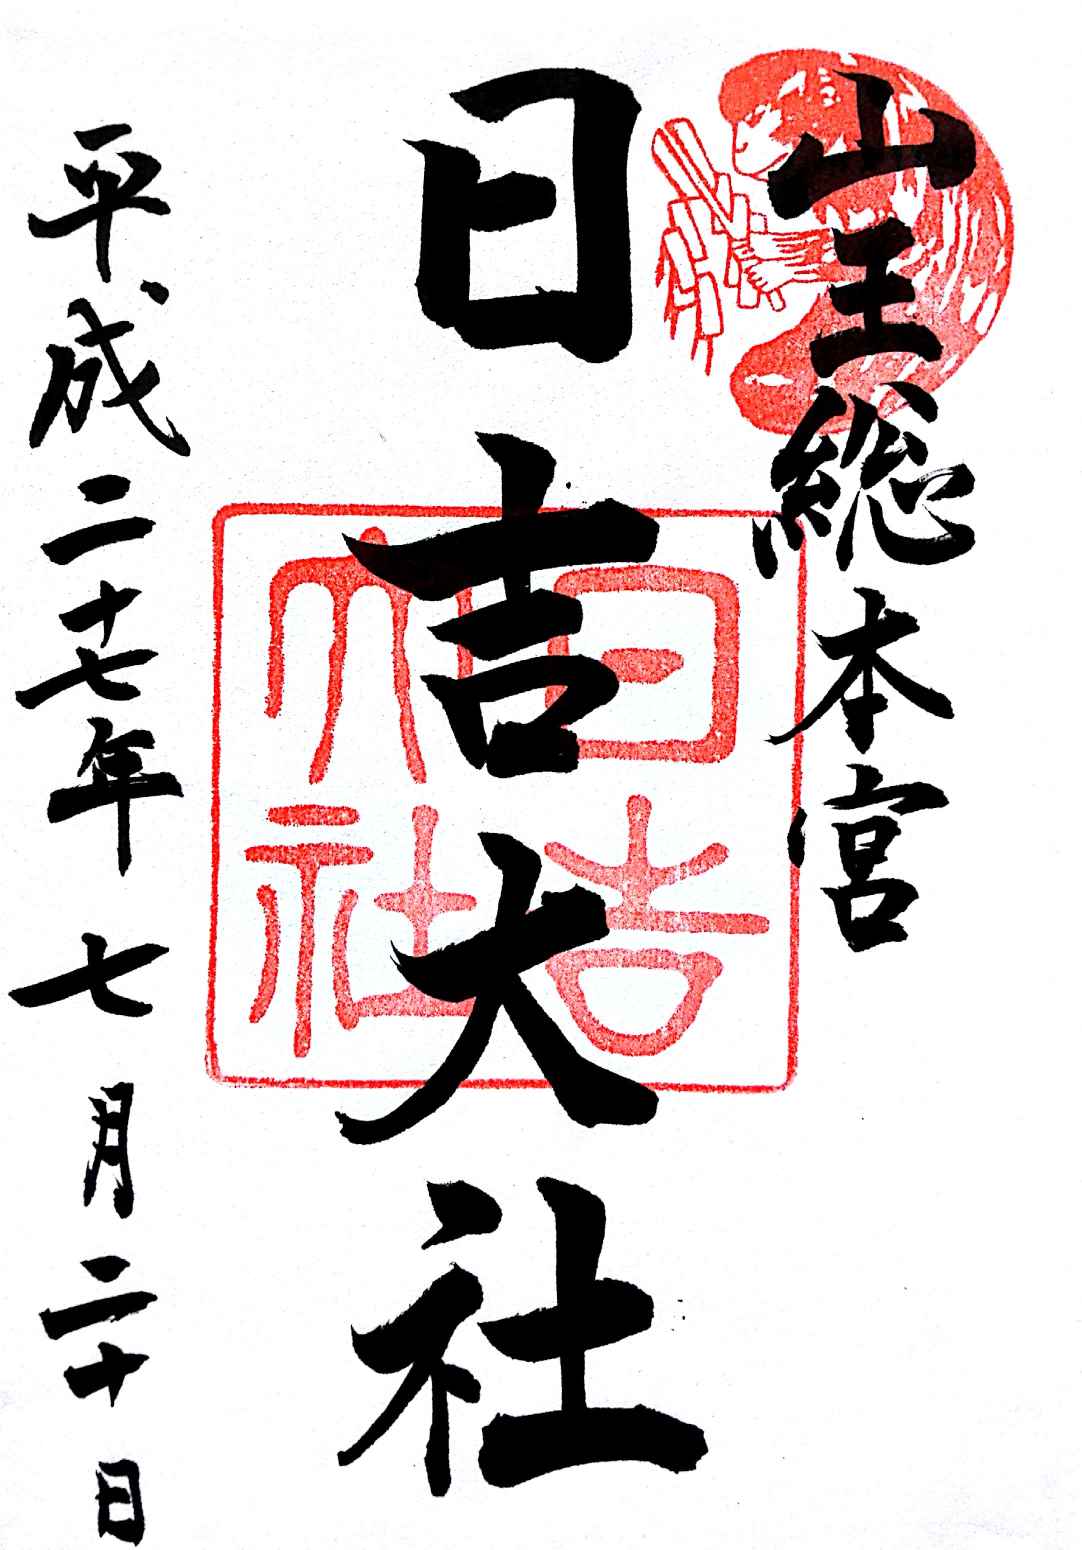 山王総本宮
日吉大社
日吉大社
平成二十七年七月二十日